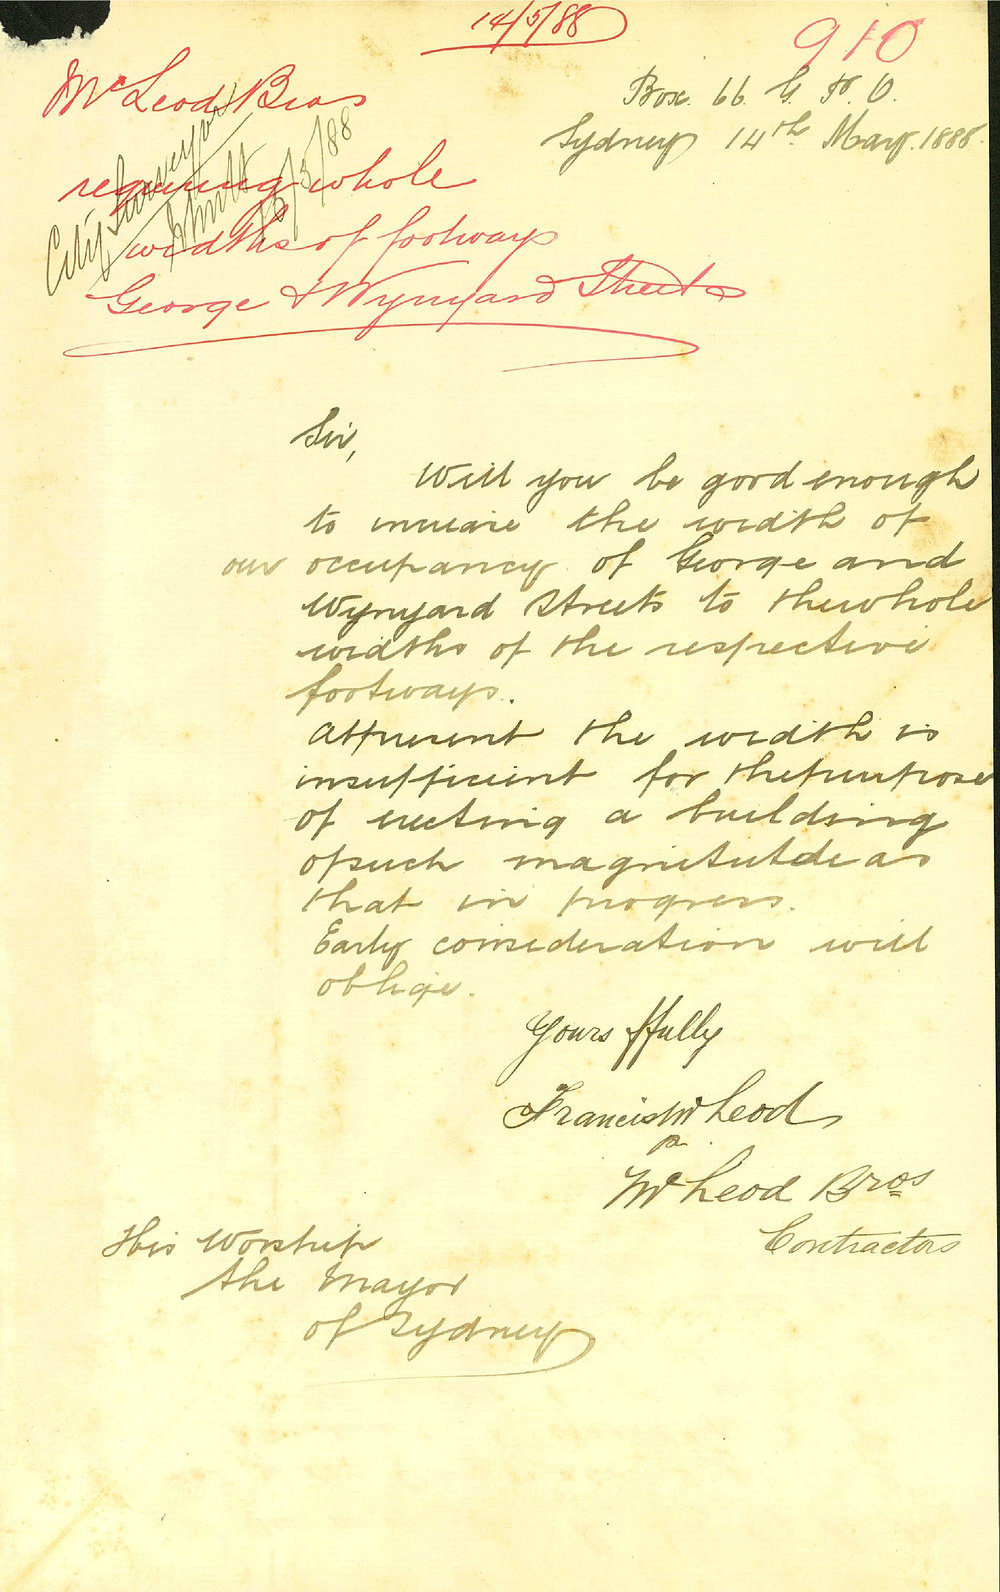 14/5/88
910
McLeod Bros
requiring whole
widths of footways
George & Wynyard Streets
City Surveyor
15/5/88
Box. 66 G. P. O.
Sydney 14th May. 1888.
Sir,
Will you be good enough
to increase the width of
our occupancy of George and
Wynyard Streets to the whole
widths of the respective
footways.
At present the width is
insufficient for the purpose
of erecting a building
of such magnitutde as
that in progress.
Early consideration will
oblige.
Yours ffully
Francis McLeod
p.
McLeod Bros
Contractors
His Worship
the Mayor
of Sydney